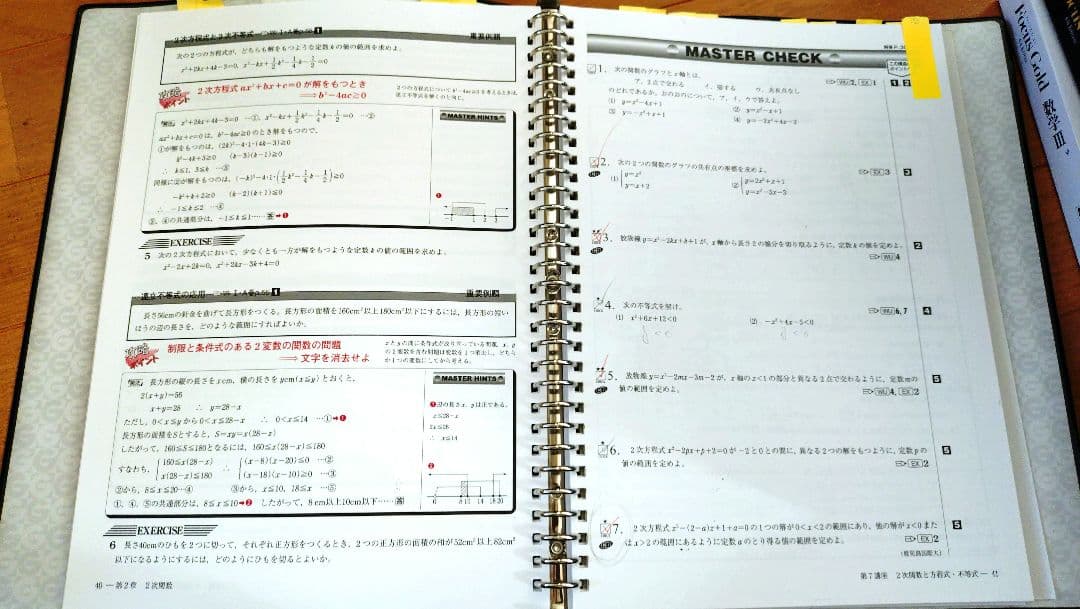 2次方程式と2次不等式
I・A
重要例題
次の2つの方程式が、どちらも解をもつような定数kの値の範囲を求めよ。
x²+2kx+4k-3=0, x²-kx+1/2k²-1/4k-1/2=0
攻略ポイント
2次方程式 ax²+bx+c=0 が解をもつとき
⟹b²-4ac≧0
x²+2kx+4k-3=0 …①, x²-kx+1/2k²-1/4k-1/2=0 …②
MASTER HINTS
ax²+bx+c=0は、b²-4ac≧0のとき解をもつので、
①が解をもつのは、(2k)²-4・1・(4k-3)≧0
k²-4k+3≧0 (k-3)(k-1)≧0
∴ k≦1, 3≦k …③
同様に②が解をもつのは、(-k)²-4・1・(1/2k²-1/4k-1/2)≧0
-k²+k+2≧0 (k-2)(k+1)≦0
∴ -1≦k≦2 …④
③、④の共通部分は、-1≦k≦1……答➡❶
EXERCISE
5 次の2次方程式において、少なくとも一方が解をもつような定数kの値の範囲を求めよ。
x²-2x+2k=0, x²+2kx-3k+4=0
連立不等式の応用
I・A
重要例題
長さ56cmの針金を曲げて長方形をつくる。長方形の面積を160cm²以上180cm²以下にするには、長方形の短い
ほうの辺の長さを、どのような範囲にすればよいか。
攻略ポイント
制限と条件式のある2変数の関数の問題
⟹ 文字を消去せよ
長方形の縦の長さをxcm、横の長さをycm(x≦y)とおくと、
MASTER HINTS
2(x+y)=56
x+y=28 ∴ y=28-x
ただし、0<x≦yから0<x≦28-x ∴ 0<x≦14 …①➡❶
長方形の面積をSとすると、S=xy=x(28-x)
したがって、160≦S≦180となるには、160≦x(28-x)≦180
すなわち、{160≦x(28-x) ∴ {(x-8)(x-20)≦0 …②
x(28-x)≦180 (x-18)(x-10)≧0 …③
②から、8≦x≦20…④ ③から、x≦10, 18≦x …⑤
①、④、⑤の共通部分は、8≦x≦10➡❷ したがって、8cm以上10cm以下……答
❶辺の長さx, yは正である。
x≦28-x
2x≦28
∴ x≦14
❷
0 8 10 14 18 20
EXERCISE
6 長さ40cmのひもを2つに切って、それぞれ正方形をつくるとき、2つの正方形の面積の和が52cm²以上82cm²
以下になるようにするには、どのようにひもを切るとよいか。
46 ─ 第2章 2次関数
MASTER CHECK
1. 次の関数のグラフとx軸とは、
ア. 2点で交わる イ. 接する ウ. 共有点なし
のどれであるか。おのおのについて、ア、イ、ウで答えよ。
(1) y=x²-4x+1 (2) y=x²-x+1
(3) y=-x²+x+1 (4) y=-2x²+4x-2
WU2, EX1
1 2
2. 次の2つの関数のグラフの共有点の座標を求めよ。
(1) {y=x²
y=x+2
(2) {y=2x²+x+1
y=x²-3x-3
EX3
3
3. 放物線y=x²-2kx+k+1が、x軸から長さ2の線分を切り取るように、定数kの値を定めよ。
WU4
2
4. 次の不等式を解け。
(1) x²+6x+12<0 (2) -x²+4x-5<0
WU6, 7
4
5. 放物線y=x²-2mx-3m-2が、x軸のx<1の部分と異なる2点で交わるように、定数mの
値の範囲を定めよ。
WU4, EX2
5
6. 2次方程式x²-2px+p+2=0が-2と0との間に、異なる2つの解をもつように、定数pの
値の範囲を定めよ。
EX2
5
7. 2次方程式x²-(2-a)x+1+a=0の1つの解が0<x<2の範囲にあり、他の解がx<0また
はx>2の範囲にあるように定数aのとり得る値の範囲を定めよ。
EX2
5
(鹿児島国際大)
第7講座 2次関数と方程式・不等式 ─ 47
Focus Gold 数学III